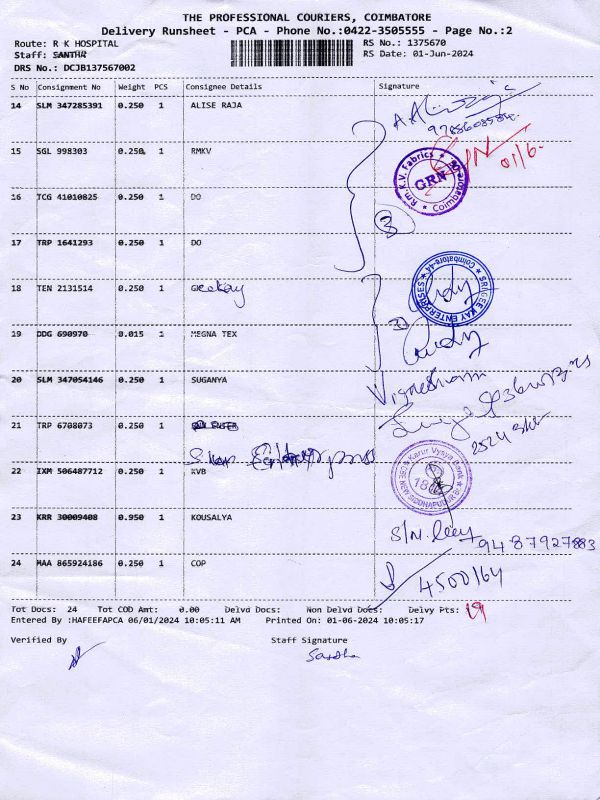 THE PROFESSIONAL COURIERS, COIMBATORE
Delivery Runsheet - PCA - Phone No.:0422-3505555 - Page No.:2
Route: R K HOSPITAL RS No.: 1375670
Staff: SANTHA RS Date: 01-Jun-2024
DRS No.: DCJB137567002
S No Consignment No Weight PCS Consignee Details Signature
14 SLM 347285391 0.250 1 ALISE RAJA
15 SGL 998303 0.250 1 RMKV
01/6
Rm. K.V. Fabrics * Coimbatore *
GRN
16 TCG 41010825 0.250 1 DO
3
17 TRP 1641293 0.250 1 DO
18 TEN 2131514 0.250 1 Geekay
SRI GEE KAY ENTERPRISES * Coimbatore-44 *
19 DDG 690970 0.015 1 MEGNA TEX
20 SLM 347054146 0.250 1 SUGANYA
Vigneshwari
21 TRP 6708073 0.250 1
22 IXM 506487712 0.250 1 KVB
Karur Vysya Bank
23 KRR 30009408 0.950 1 KOUSALYA
9487927883
24 MAA 865924186 0.250 1 COP
4500164
Tot Docs: 24 Tot COD Amt: 0.00 Delvd Docs: Non Delvd Docs: Delvy Pts: 19
Entered By :HAFEEFAPCA 06/01/2024 10:05:11 AM Printed On: 01-06-2024 10:05:17
Verified By Staff Signature
Santha